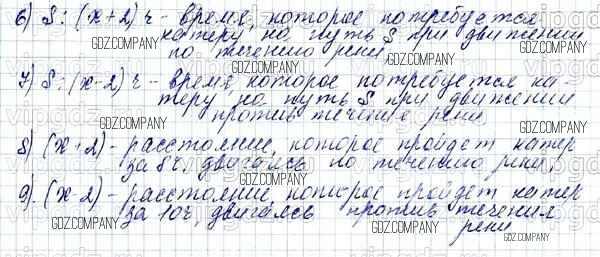 6) S : (x + 2) ч - время, которое потребуется
катеру на путь S при движении
по течению реки.
7) S : (x - 2) ч - время, которое потребуется ка-
теру на путь S при движении
против течения реки.
8) (x + 2) - расстояние, которое пройдет катер
за 8 ч, двигаясь по течению реки,
9). (x - 2) - расстояние, которое пройдет катер
за 10 ч, двигаясь против течения
реки